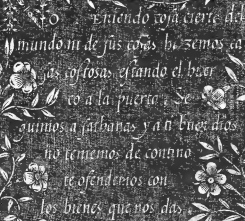 O Eniendo cosa cierta del
mundo ni de sus cosas, hazemos ca
sas costosas, estando el huer
co a la puerta: Se
guimos a sathanas, y a ti buen dios
no tememos de contino
te ofendemos con
los bienes que nos das